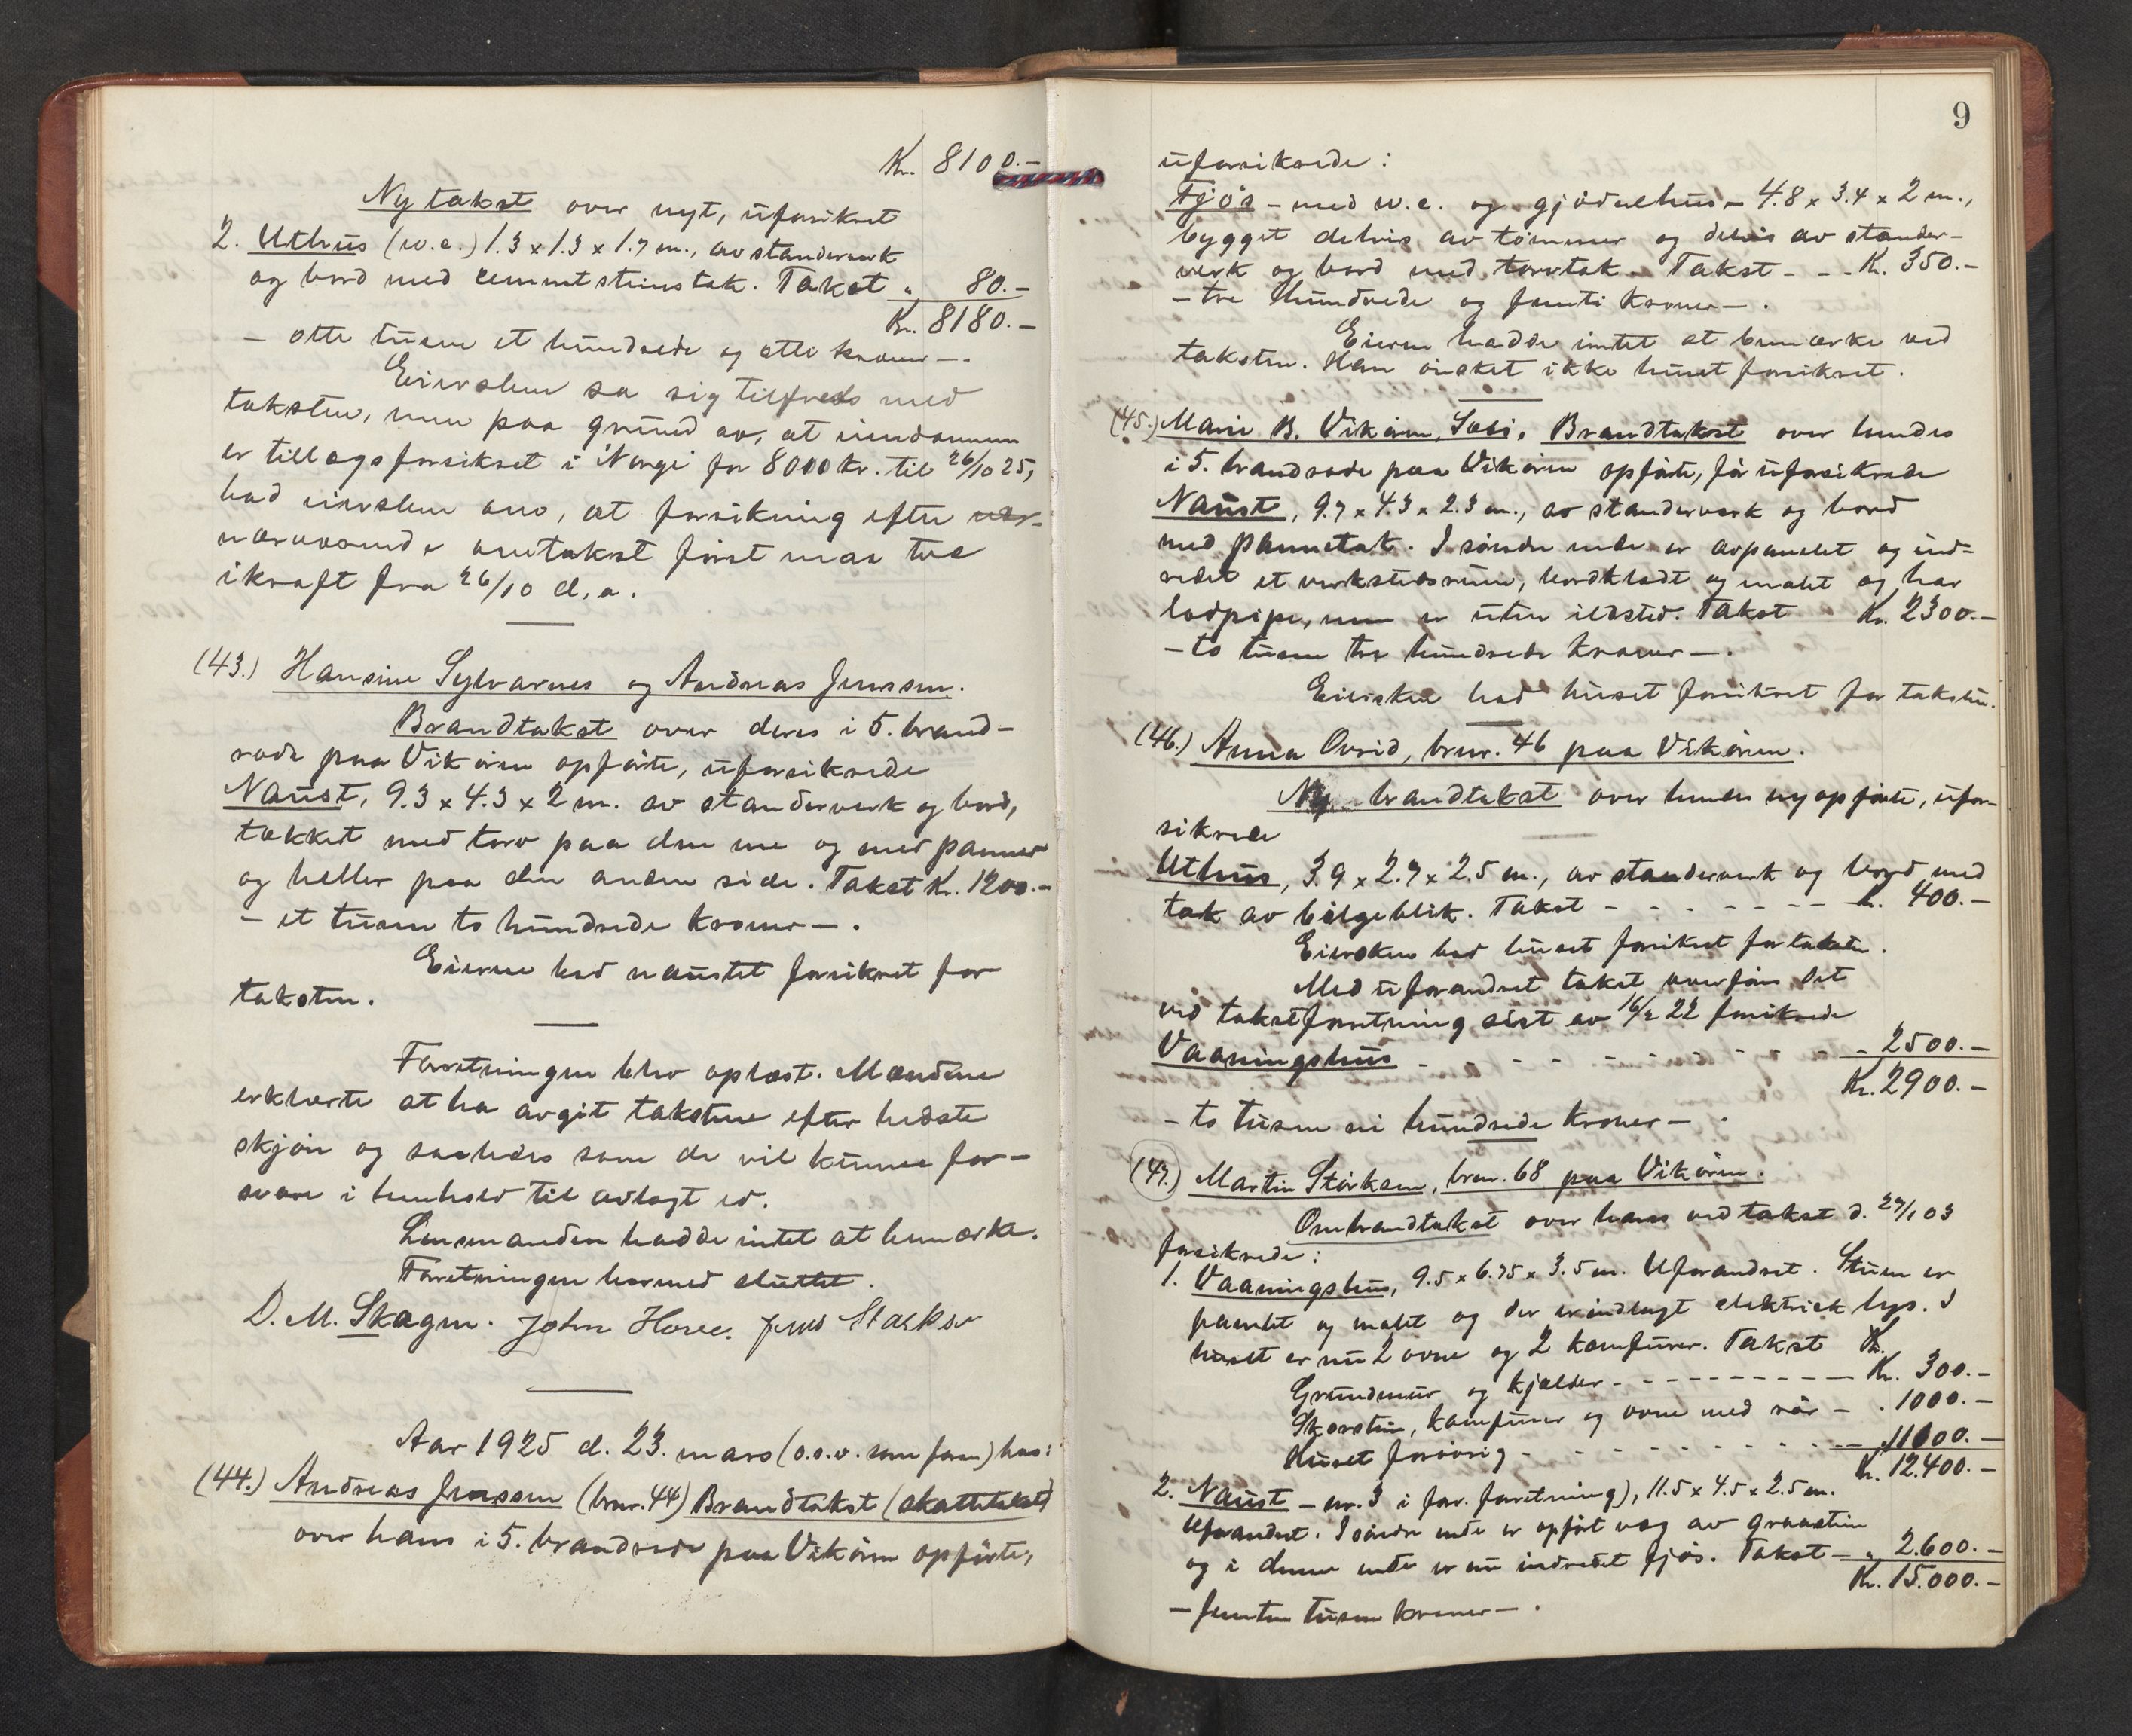 Kr. 8100.-
Ny takst over nyt, uforsikret
2. Uthus (w.c.) 1.3 x 1.3 x 1.7 m., av standerverk
og bord med cementstenstak. Takst " 80.-
Kr. 8180.-
- otte tusen et hundrede og otti kroner -.
Eiersken sa sig tilfreds med
taksten, men paa grund av, at eiendommen
er tillægsforsikret i Norge for 8000 kr. til 26/10 25,
bad eiersken om, at forsikring efter nær-
nærværende omtakst først maa træ
ikraft fra 26/10 d.a.
(43.) Hansine Sylvarnes og Andreas Jenssen.
Brandtakst over deres i 5. brand-
rode paa Vikøren opførte, uforsikrede
Naust, 9.3 x 4.3 x 2 m. av standerverk og bord,
tækket med torv paa den ene og med panner
og heller paa den anden side. Takst Kr. 1200.-
- et tusen to hundrede kroner -.
Eierne bad naustet forsikret for
taksten.
Forretningen blev oplæst. Mændene
erklærte at ha avgit takstene efter bedste
skjøn og saaledes som de vil kunne for-
svare i henhold til avlagt ed.
Lensmanden hadde intet at bemærke.
Forretningen hermed sluttet.
D. M. Skagen. John Hove. Jens
Aar 1925 d. 23. mars (o.s.v. som foran) hos:
(44.) Andreas Jenssen (brnr. 44) Brandtakst (skattetakst)
over hans i 5. brandrode paa Vikøren opførte,
9
uforsikrede:
Fjøs - med w.c. og gjødselhus - 4.8 x 3.4 x 2 m.,
bygget delvis av tømmer og delvis av stander-
verk og bord med torvtak. Takst - - - Kr. 350.-
- tre hundrede og femti kroner -.
Eieren hadde intet at bemærke ved
taksten. Han ønsket ikke huset forsikret.
(45.) Marie B. Vikøren, Sæbi. Brandtakst over hendes
i 5. brandrode paa Vikøren opførte, før uforsikrede
Naust, 9.7 x 4.3 x 2.3 m., av standerverk og bord
med pannetak. I søndre ende er avpanelet og ind-
redet et verkstedsrum, bordklædt og malet og har
lodpipe, men er uten ildsted. Takst Kr. 2300.-
- to tusen tre hundrede kroner -.
Eiersken bad huset forsikret for taksten.
(46.) Anna Ovrid, brnr. 46 paa Vikøren.
Ny brandtakst over hendes nyopførte, ufor-
sikrede
Uthus, 3.9 x 2.7 x 2.5 m., av standerverk og bord med
tak av bølgeblik. Takst - - - - - - - - Kr. 400.-
Eiersken bad huset forsikret for taksten.
Med uforandret takst overføres det
ved takstforretning sist av 16/2 22 forsikrede
Vaaningshus - - - - - - - - - - 2500.-
Kr. 2900.-
- to tusen ni hundrede kroner -.
(47.) Martin Storksen, brnr. 68 paa Vikøren.
Ombrandtakst over hans ved takst d. 27/1 03
forsikrede:
1. Vaaningshus, 9.5 x 6.75 x 3.5 m. Uforandret. Stuen er
panelet og malet og der er indlagt elektrisk lys. I
huset er nu 2 ovne og 2 komfurer. Takst Kr.
Grundmur og kjælder - - - - - - - - - - Kr. 300.-
Skorstein, komfurer og ovne med rør - . 1000.-
Huset forøvrig - - - - - - - - - - - 11100.-
Kr. 12.400.-
2. Naust - nr. 3 i før. forretning), 11.5 x 4.5 x 2.5 m.
Uforandret. I søndre ende er opført væg av graastein
og i denne ende er nu indredet fjøs. Takst - " 2.600.-
Kr. 15.000.-
- femten tusen kroner -.